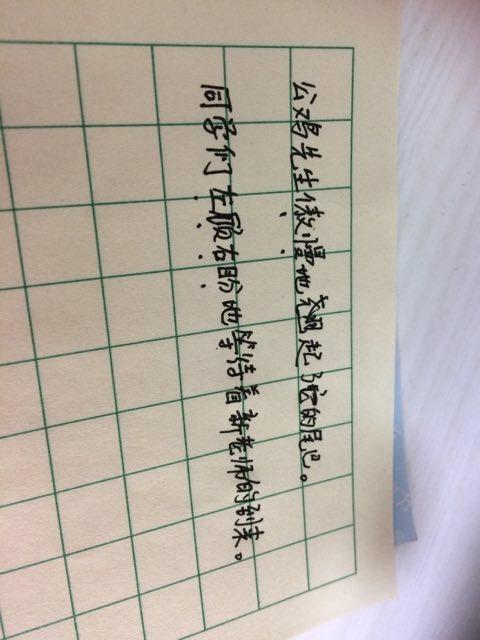 公鸡先生傲慢地翘起了它的尾巴。
同学们左顾右盼地等待着新老师的到来。